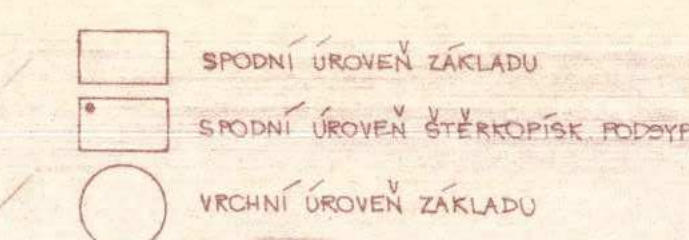 SPODNÍ ÚROVEŇ ZÁKLADU
SPODNÍ ÚROVEŇ ŠTĚRKOPÍSK PODSYP
VRCHNÍ ÚROVEŇ ZÁKLADU